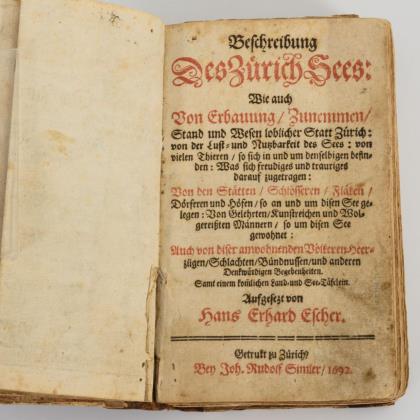 Beschreibung
Des Zürich Sees:
Wie auch
Von Erbauung / Zunemmen /
Stand und Wesen loblicher Statt Zürich:
von der Lust- und Nutzbarkeit des Sees: von
vielen Thieren / so sich in und um denselbigen befin-
den: Was sich freudiges und trauriges
darauf zugetragen:
Von den Stätten / Schlösseren / Fläken /
Dörferen und Höfen / so an und um disen See ge-
legen: Von Gelehrten / Kunstreichen und Wol-
gereißten Männern / so um disen See
gewohnet:
Auch von diser anwohnenden Völkeren Heer-
zügen / Schlachten / Bündnussen / und anderen
Denkwürdigen Begebenheiten.
Samt einem komlichen Land- und See-Täfelein.
Aufgesezt von
Hans Erhard Escher.
Getrukt zu Zürich /
Bey Joh. Rudolf Simler / 1692.